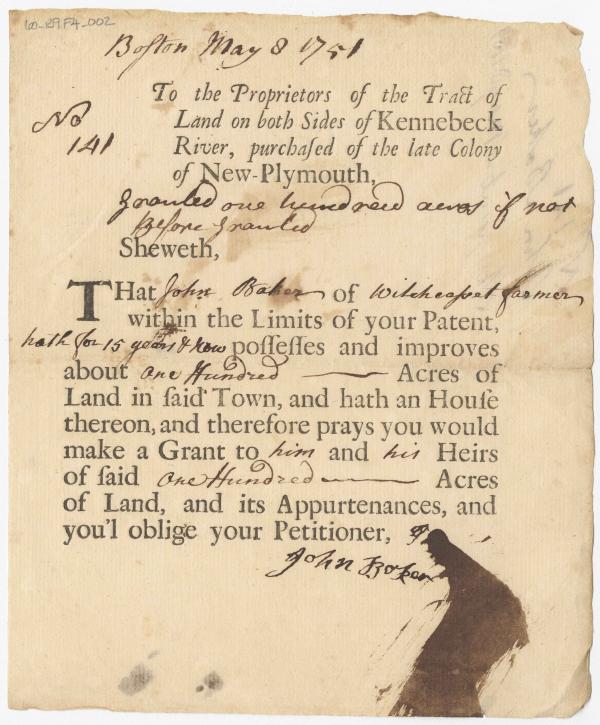 60-R9F4-002
Boſton May 8 1751
No
141
To the Proprietors of the Tract of
Land on both Sides of Kennebeck
River, purchaſed of the late Colony
of New-Plymouth,
Granted one hundred acres if not
Before Granted
Sheweth,
THat John Baker of Witcheaſset farmer
within the Limits of your Patent,
hath for 15 years & now poſſeſſes and improves
about one Hundred Acres of
Land in ſaid Town, and hath an Houſe
thereon, and therefore prays you would
make a Grant to him and his Heirs
of ſaid one Hundred Acres
of Land, and its Appurtenances, and
you'l oblige your Petitioner,
John Baker